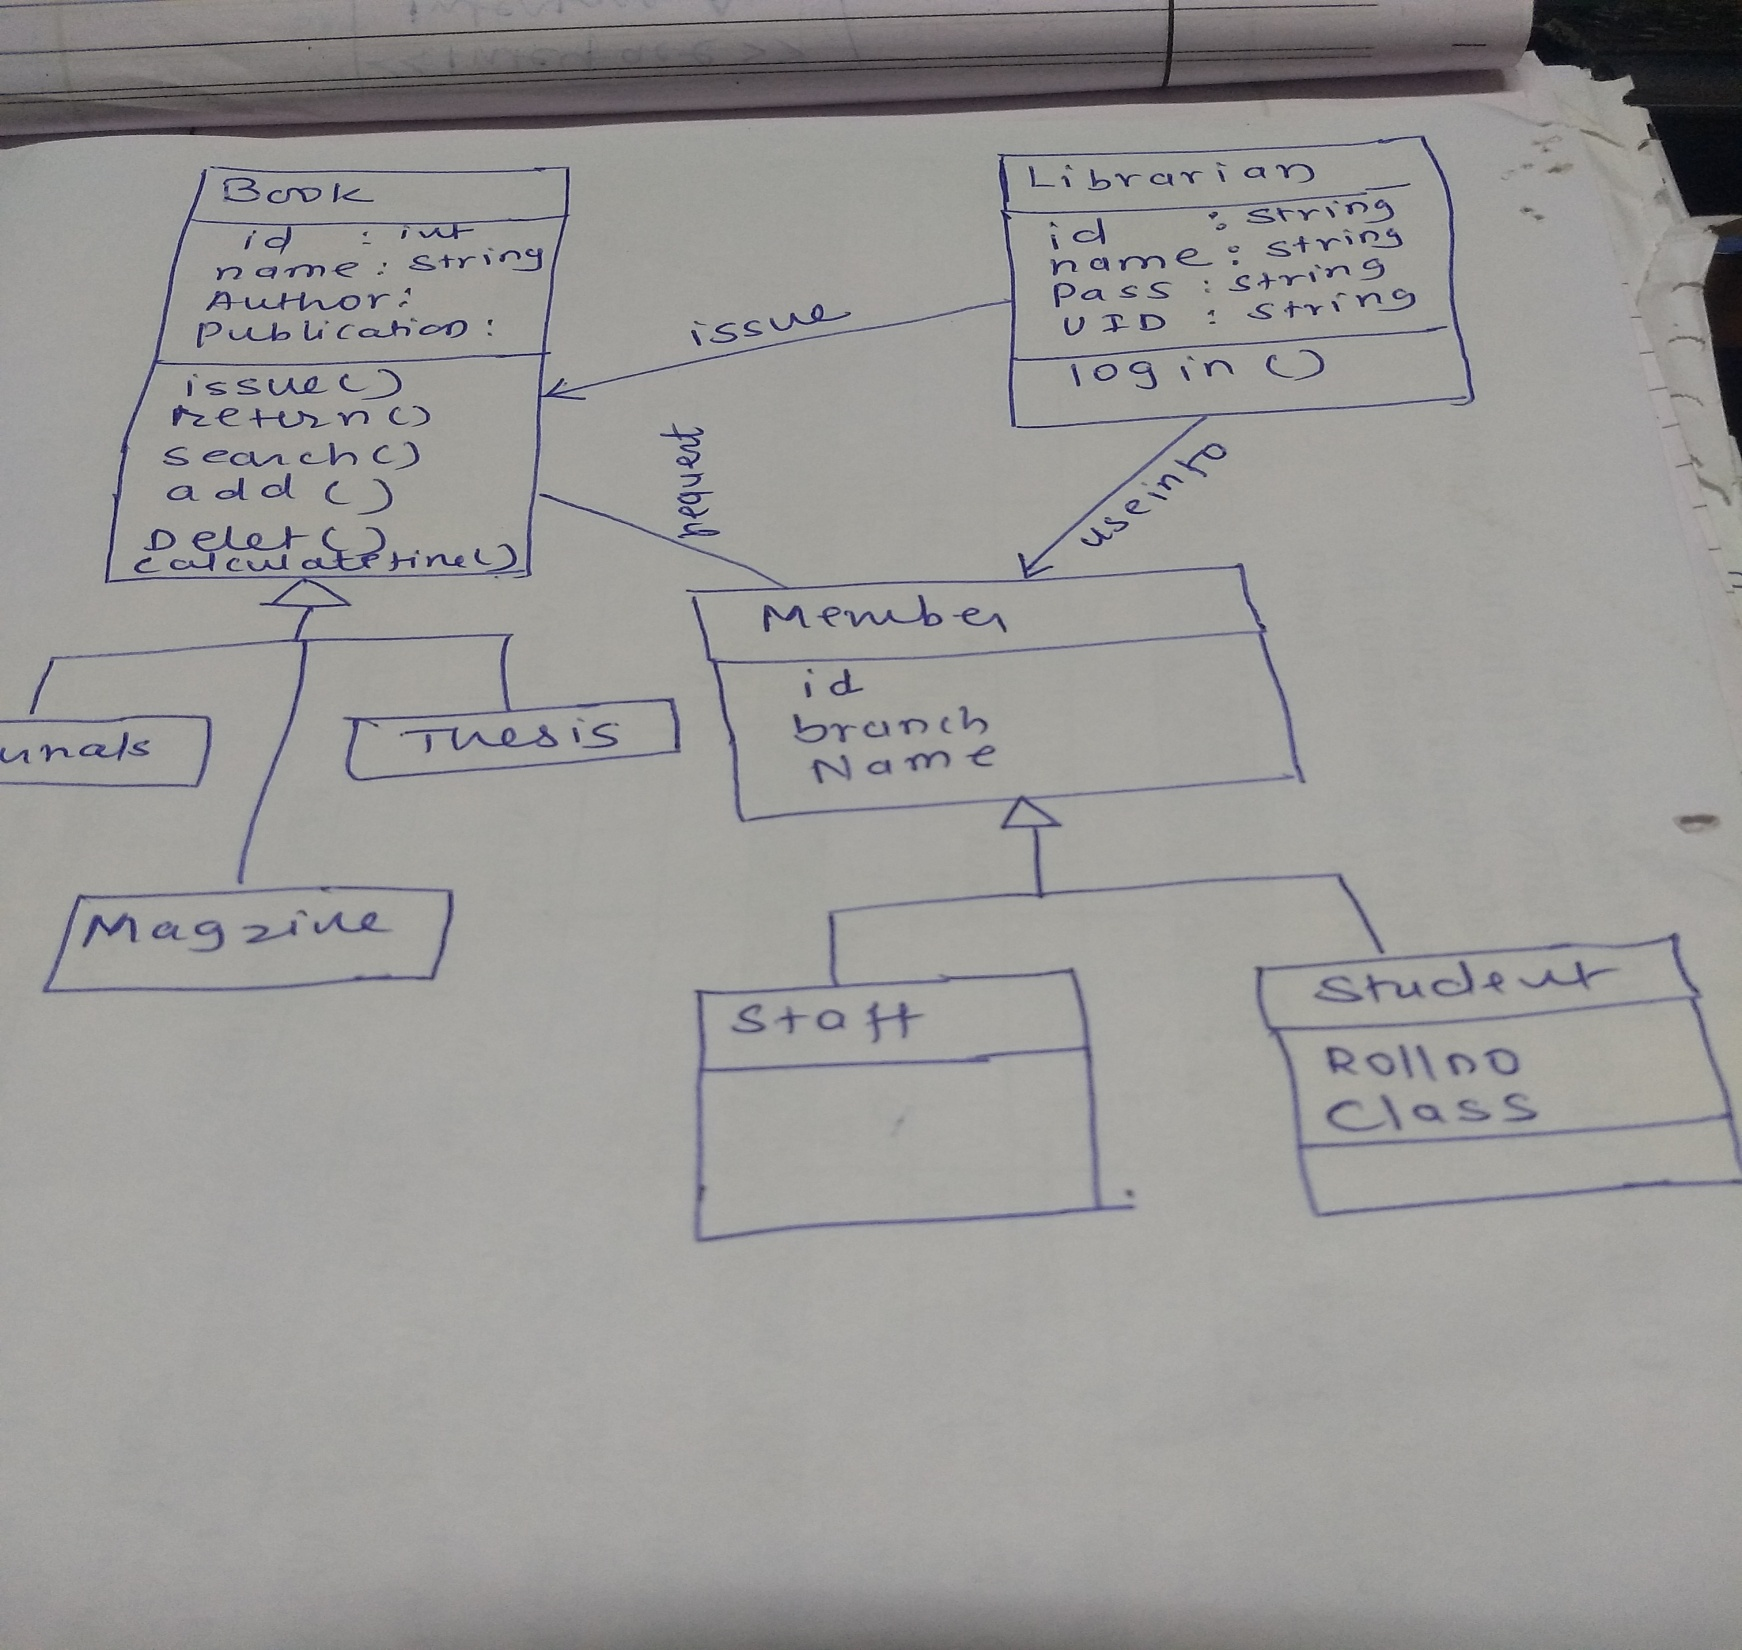 Book
id : int
name : string
Author :
Publication :
issue()
return()
search()
add()
Delet()
calculatefine()
Librarian
id : string
name : string
Pass : string
UID : string
login()
issue
request
use into
Member
id
branch
Name
unals
Thesis
Magzine
Staff
Student
Rollno
Class